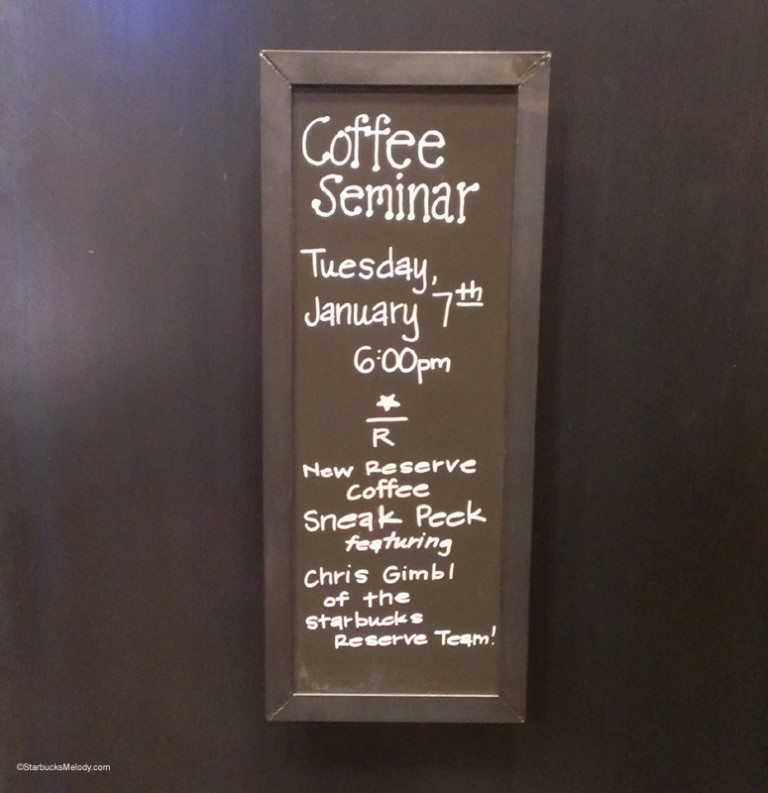 Coffee
Seminar
Tuesday,
January 7th
6:00pm
R
New Reserve
Coffee
Sneak Peek
featuring
Chris Gimbl
of the
Starbucks
Reserve Team!
©StarbucksMelody.com